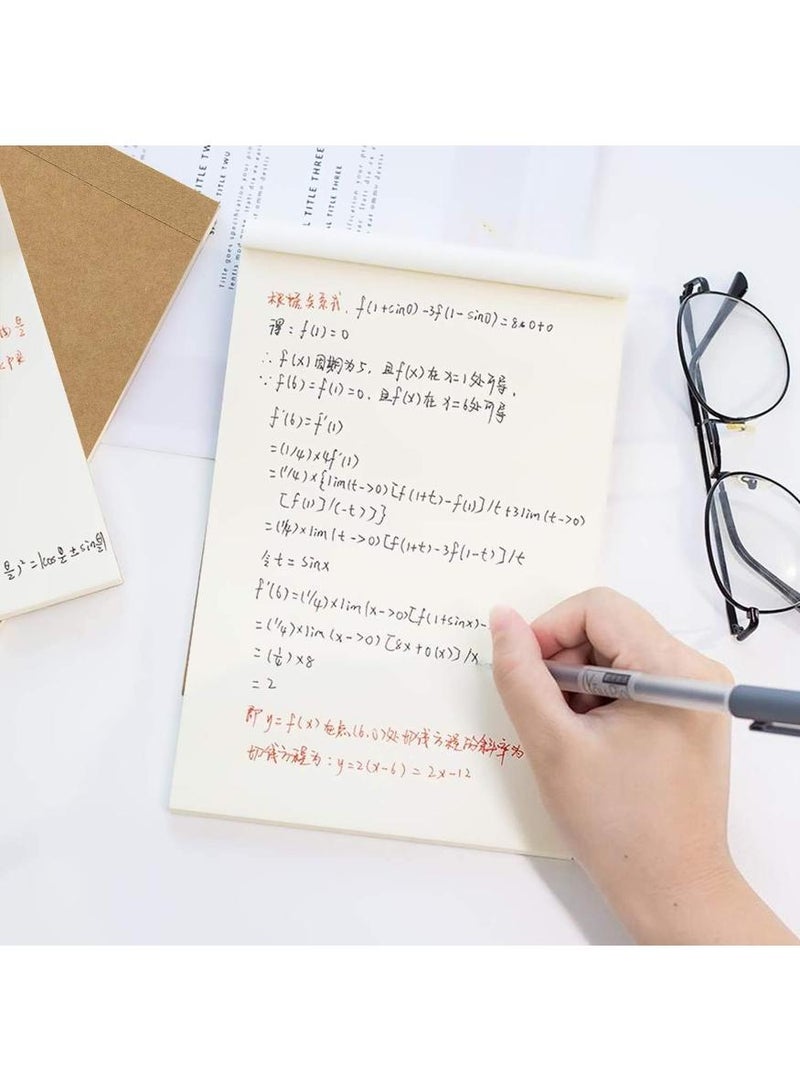 TITLE TWO
TITLE TWO
L TITLE THREE
AL TITLE THREE
根据关系式, f(1+sin0)-3f(1-sin0)=8*0+0
得:f(1)=0
∴ f(x)周期为5, 且f(x)在x=1处可导,
∵ f(6)=f(1)=0, 且f(x)在x=6处可导
f'(6)=f'(1)
=(1/4)×4f'(1)
=(1/4)×{lim(t->0)[f(1+t)-f(1)]/t+3lim(t->0)
[f(1)]/(-t)]}
=(1/4)×lim(t->0)[f(1+t)-3f(1-t)]/t
令t=sinx
f'(6)=(1/4)×lim(x->0)[f(1+sinx)-
=(1/4)×lim(x->0)[8x+0(x)]/x
=(1/4)×8
=2
即y=f(x)在点(6,0)处切线方程的斜率为
切线方程为:y=2(x-6)=2x-12